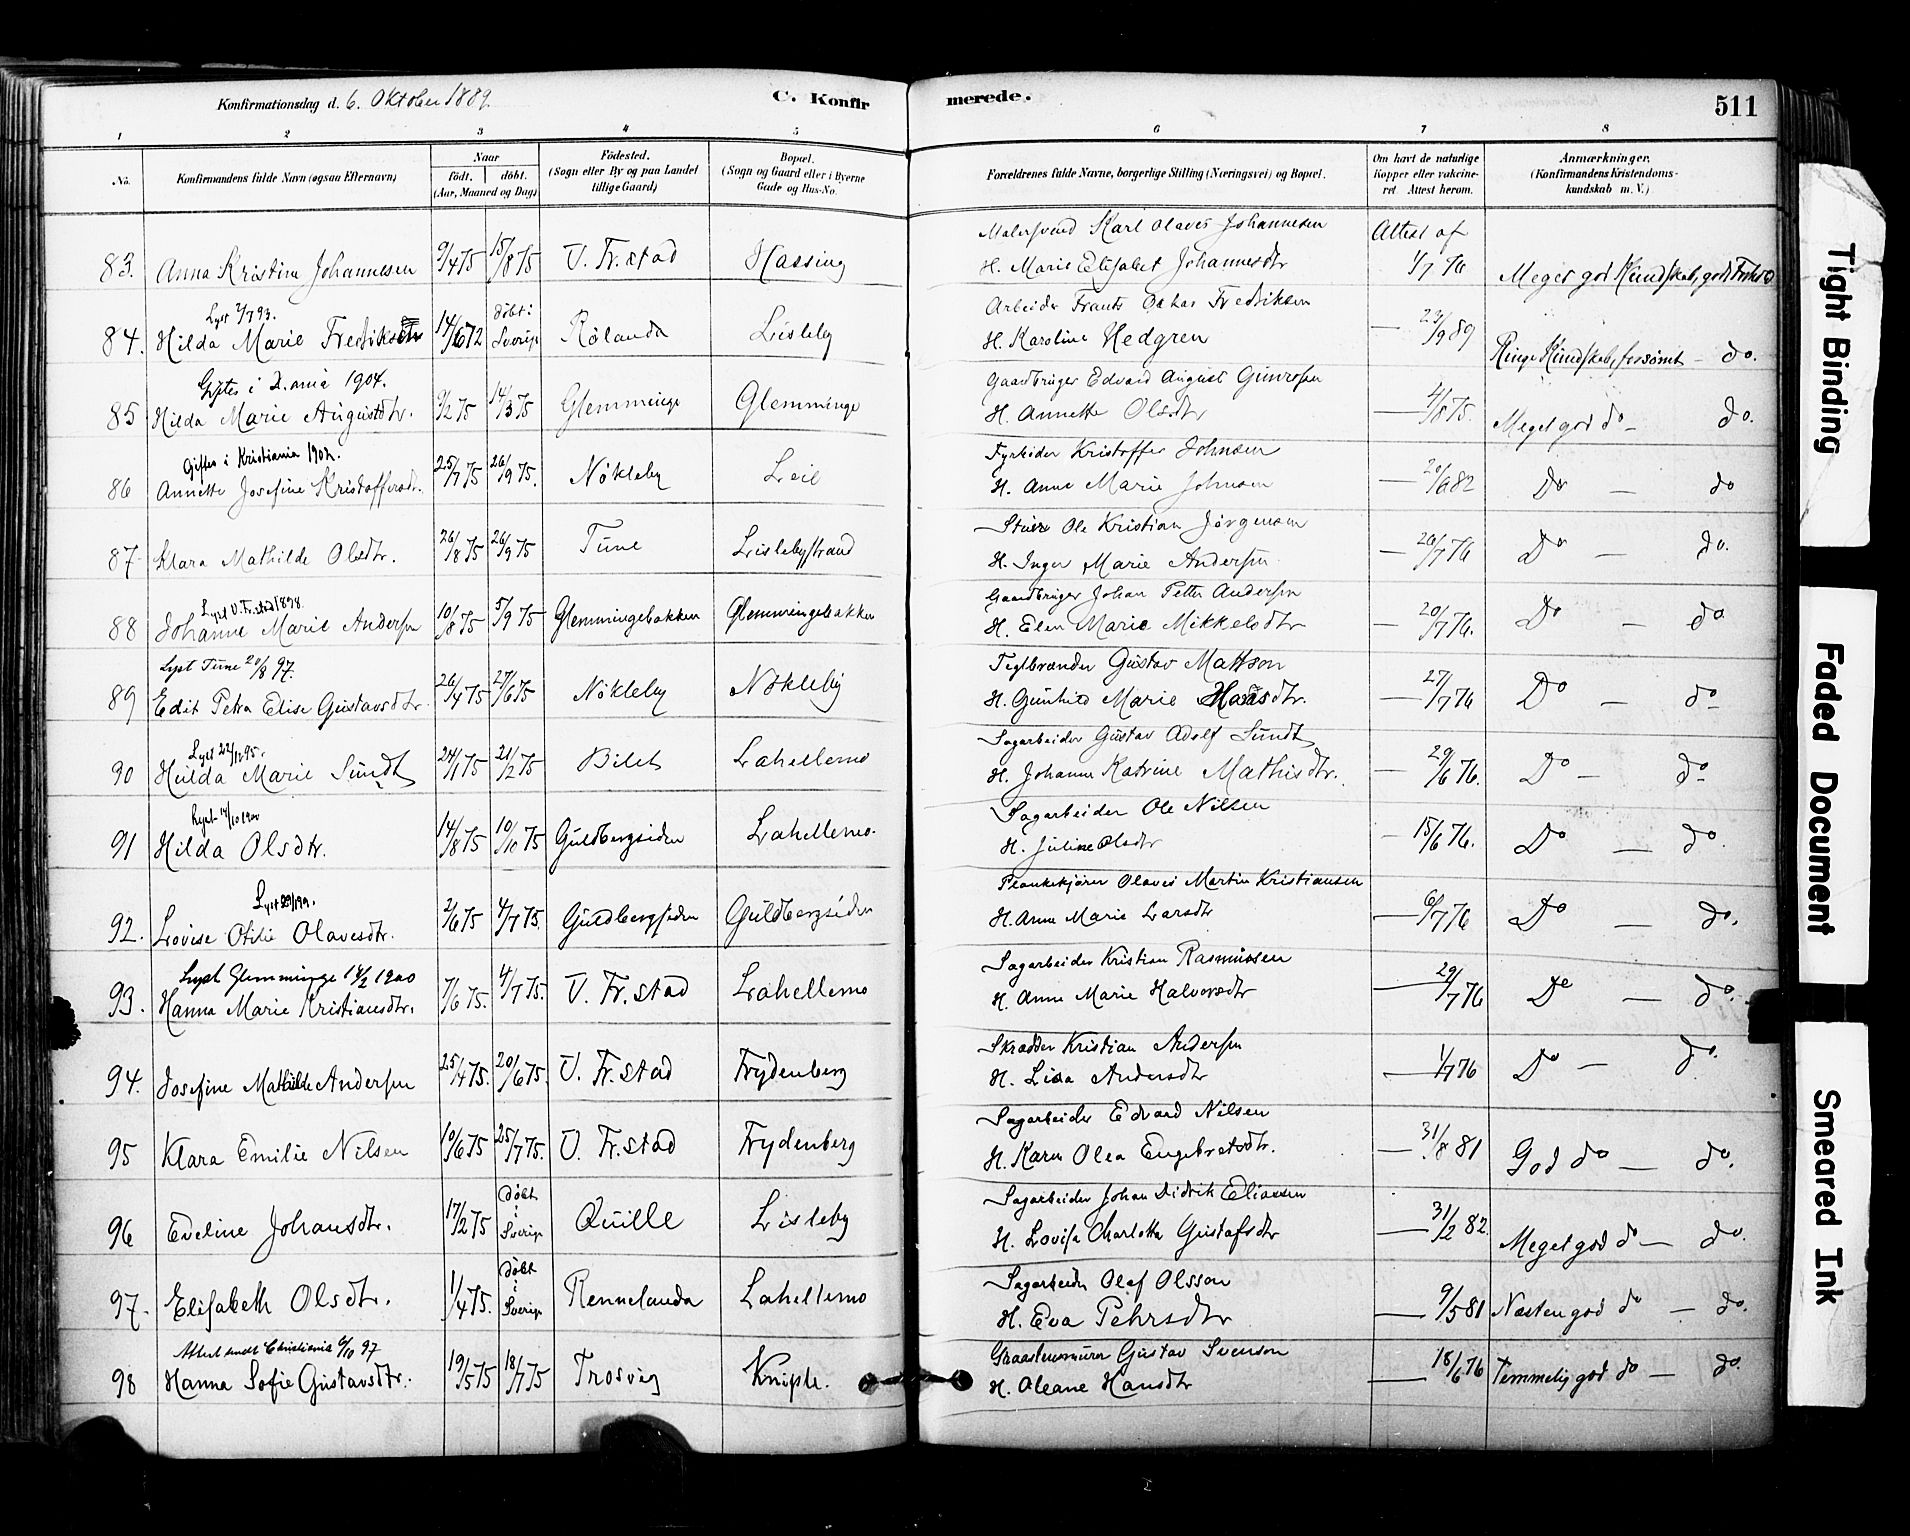 Konfirmationsdag d. 6. Oktober 1889.
C. Konfirmerede.
511
1 2 3 4 5 6 7 8
No.
Konfirmandens fulde Navn (ogsaa Efternavn)
Naar
födt. döbt.
(Aar, Maaned og Dag)
Födested.
(Sogn eller By og paa Landet
tillige Gaard)
Bopæl.
(Sogn og Gaard eller i Byerne
Gade og Hus-No.
Forældrenes fulde Navne, borgerlige Stilling (Næringsvei) og Bopæl.
Om havt de naturlige
Kopper eller vakcine-
ret. Attest herom.
Anmærkninger.
(Konfirmandens Kristendoms-
kundskab m. V.)
Malersvend Karl Olaves Johannesen Attest af
83. Anna Kristine Johannesen 9/4 75 15/8 75 V. Fr.stad Hassing H. Marie Elisabet Johannesdtr 1/7 76 Meget god Kundskab, god
Lyst 2/7 93. döbt i Arbeider Frants Oskar Fredriksen
84. Hilda Marie Fredriksdtr 14/6 72 Sverige Rölanda Lisleby H. Karoline Hedgren — 23/9 89 Ringe Kundskab, forsömt — do.
Giftes i 1904. Gaardbruger Edvard August
85 Hilda Marie Augustdtr. 9/2 75 14/3 75 Glemminge Glemminge H. Annette Olsdtr — 4/8 75. Meget god do — do.
Giftes i Kristiania 1902. Fyrbider Kristoffer Johnsen
86 Annette Josefine Kristoffersdtr. 25/7 75 26/9 75. Nökleby Leie H. Anne Marie Johnsen — 20/6 82 Do — do
Ole Kristian Jörgensen
87 Klara Mathilde Olsdtr. 26/8 75 26/9 75 Tune Lislebystrand H. Inger Marie Andersen — 20/7 76 Do — do.
Lyst V. Fr.stad 1898. Gaardbruger Johan Petter Andersen
88 Johanne Marie Andersen 10/8 75 5/9 75 Glemmingebakken Glemmingebakken H. Elen Marie Mikkelsdtr — 20/7 76. Do — do
Lyst Tune 20/8 97. Teglbrænder Gustav Mattson
89 Edit Petra Elise Gustavsdtr. 26/4 75 27/6 75 Nökleby Nökleby H. Gunhild Marie Hansdtr. — 27/7 76 Do — do
Lyst 22/12 95. Sagarbeider Gustav Adolf Sundt
90 Hulda Marie Sundt 24/1 75 21/2 75 Bilet Lahellemo H. Johanne Katrine Mathisdtr. — 29/6 76. Do — do
Lyst 14/10 1900 Sagarbeider Ole Nilsen
91 Hilda Olsdtr. 14/8 75 10/10 75 Guldbergsiden Lahellemo. H. Juline Olsdtr — 15/6 76. Do — do.
Plankekjörer Olaves Martin Kristiansen
92. Lovise Otilie Olavesdtr. 2/6 75 4/7 75. Guldbergsiden Guldbergsiden H. Anne Marie Larsdtr — 6/7 76 Do — do.
Lyst Glemminge 14/2 1900 Sagarbeider Kristian Rasmussen
93. Hanna Marie Kristiansdtr. 7/6 75. 4/7 75. V. Fr.stad Lahellemo H. Anne Marie Halvorsdtr — 29/7 76 Do — do.
Skrædder Kristian Andersen
94. Josefine Mathilde Andersen 25/4 75. 20/6 75. V. Fr.stad Frydenberg H. Lisa Andersdtr — 1/7 76 Do — do.
Sagarbeider Edvard Nilsen
95 Klara Emilie Nilsen 10/6 75 25/7 75. V. Fr.stad Frydenberg H. Karen Olea Engebretsdtr. — 31/8 81 God do — do.
döbt i Sagarbeider Johan Didrik Eliassen
96 Eveline Johansdtr. 17/2 75 Sverige Quille Lisleby H. Lovisa Charlotta Gustafsdtr — 31/2 82. Meget god do — do.
döbt i Sagarbeider Olaf Olsson
97. Elisabeth Olsdtr. 1/4 75. Sverige Rennelanda Lahellemo H. Eva Pehrsdtr — 9/5 81 Næsten god do — do.
Attest sendt Christiania 6/10 97 Graastensmurer Gustav Svenson
98 Hanna Sofie Gustavsdtr. 19/5 75 18/7 75 Trosvig Kniple. H. Oleane Hansdtr — 18/6 76 Temmelig god do — do.
Tight Binding
Faded Document
Smeared Ink